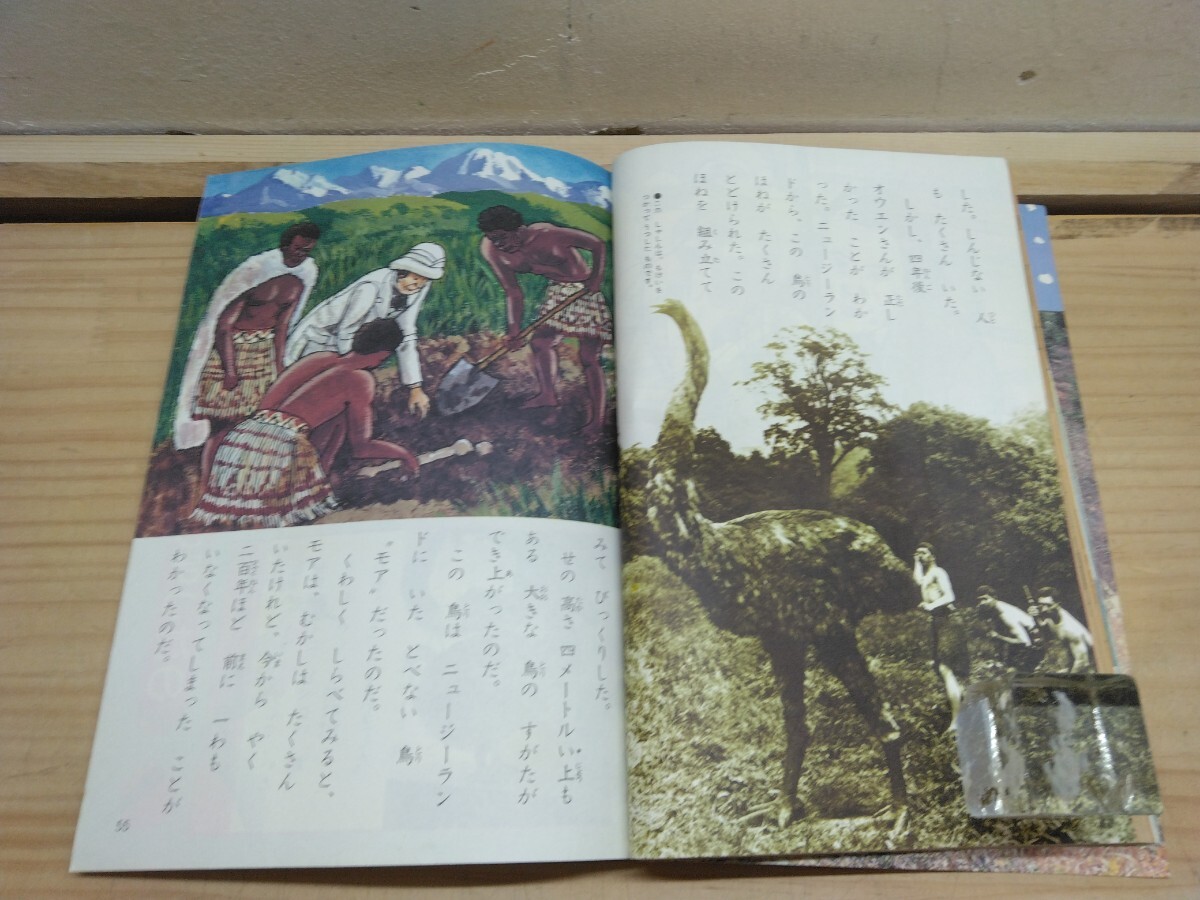 した。しんじない 人
も たくさん いた。
しかし、四年後
オウエンさんが 正し
かった ことが わか
った。ニュージーラン
ドから、この 鳥の
ほねが たくさん
とどけられた。この
ほねを 組み立てて
みて びっくりした。
せの 高さ 四メートルい上も
ある 大きな 鳥の すがたが
でき上がったのだ。
この 鳥は ニュージーラン
ドに いた とべない 鳥
〝モア〟だったのだ。
くわしく しらべてみると、
モアは、むかしは たくさん
いたけれど、今から やく
二百年ほど 前に 一わも
いなくなってしまった ことが
わかったのだ。